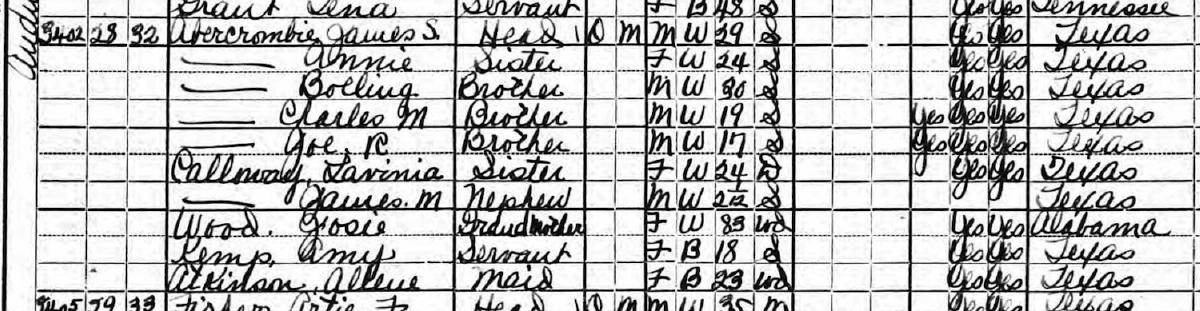 Grant Lena Servant F B 48 S Yes Yes Tennessee
3402 28 32 Abercrombie, James S. Head 1 O M M W 29 S Yes Yes Texas
—— Annie Sister F W 24 S Yes Yes Texas
—— Bolling Brother M W 30 S Yes Yes Texas
—— Charles M Brother M W 19 S Yes Yes Yes Texas
—— Joe. R. Brother M W 17 S Yes Yes Yes Texas
Calloway, Lavinia Sister F W 24 D Yes Yes Texas
—— James. M Nephew M W S Texas
Wood. Josie Grandmother F W 83 Wd Yes Yes Alabama
Kemp, Amy Servant F B 18 S Yes Yes Texas
Atkinson, Allene Maid F B 23 Wd Yes Yes Texas
3405 29 33 Fisher Artie F. Head 1 O M M W 35 M Yes Yes Texas